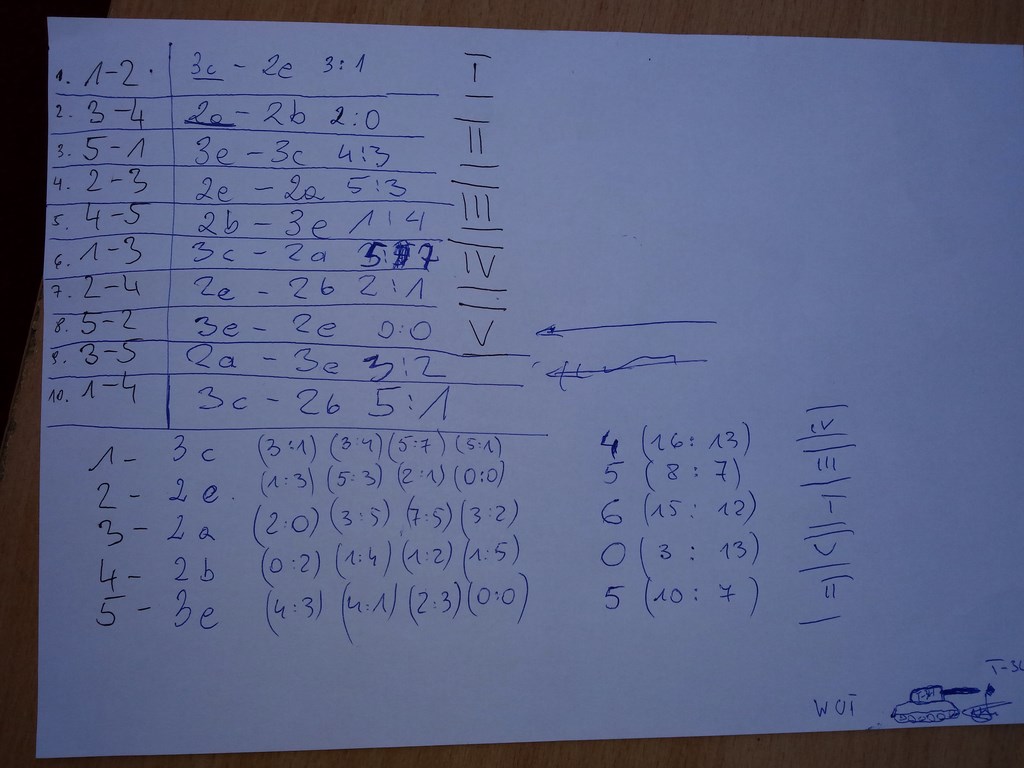 1. 1-2 3c - 2e 3:1 I
2. 3-4 2a - 2b 2:0
3. 5-1 3e - 3c 4:3 II
4. 2-3 2e - 2a 5:3
5. 4-5 2b - 3e 1:4 III
6. 1-3 3c - 2a 5:7 IV
7. 2-4 2e - 2b 2:1
8. 5-2 3e - 2e 0:0 V
9. 3-5 2a - 3e 3:2
10. 1-4 3c - 2b 5:1
1- 3c (3:1) (3:4) (5:7) (5:1) 4 (16: 13) IV
2- 2e. (1:3) (5:3) (2:1) (0:0) 5 (8:7) III
3- 2a (2:0) (3:5) (7:5) (3:2) 6 (15: 12) I
4- 2b (0:2) (1:4) (1:2) (1:5) 0 (3: 13) V
5- 3e (4:3) (4:1) (2:3) (0:0) 5 (10: 7) II
WOT